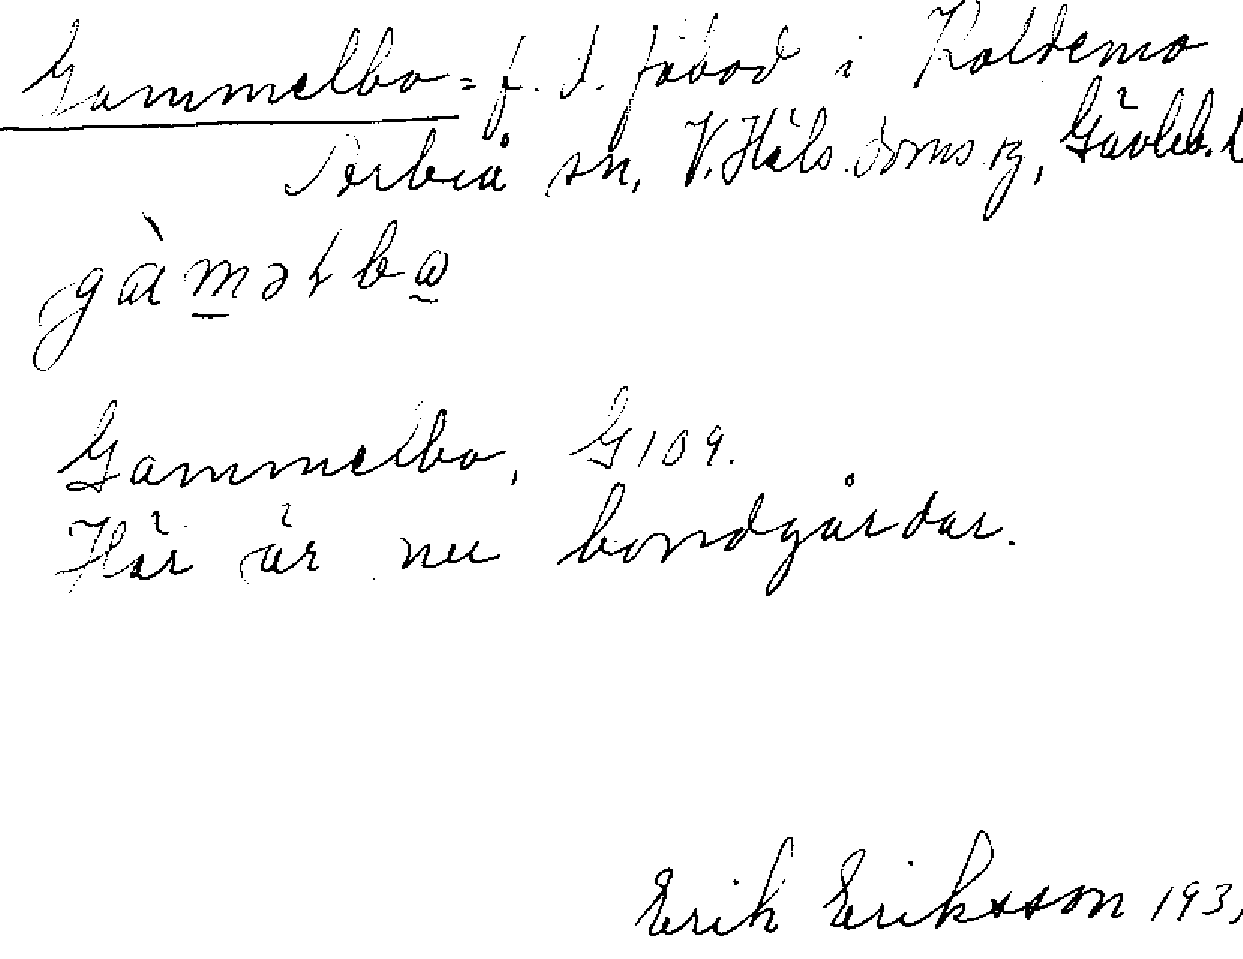 Gammelbo = f. d. fäbod i Koldemo
Arbrå sn, V. Häls. doms.ag, Gävleb. l
gàməłbω
Gammelbo, G109.
Här är nu bondgårdar.
Erik Eriksson 193